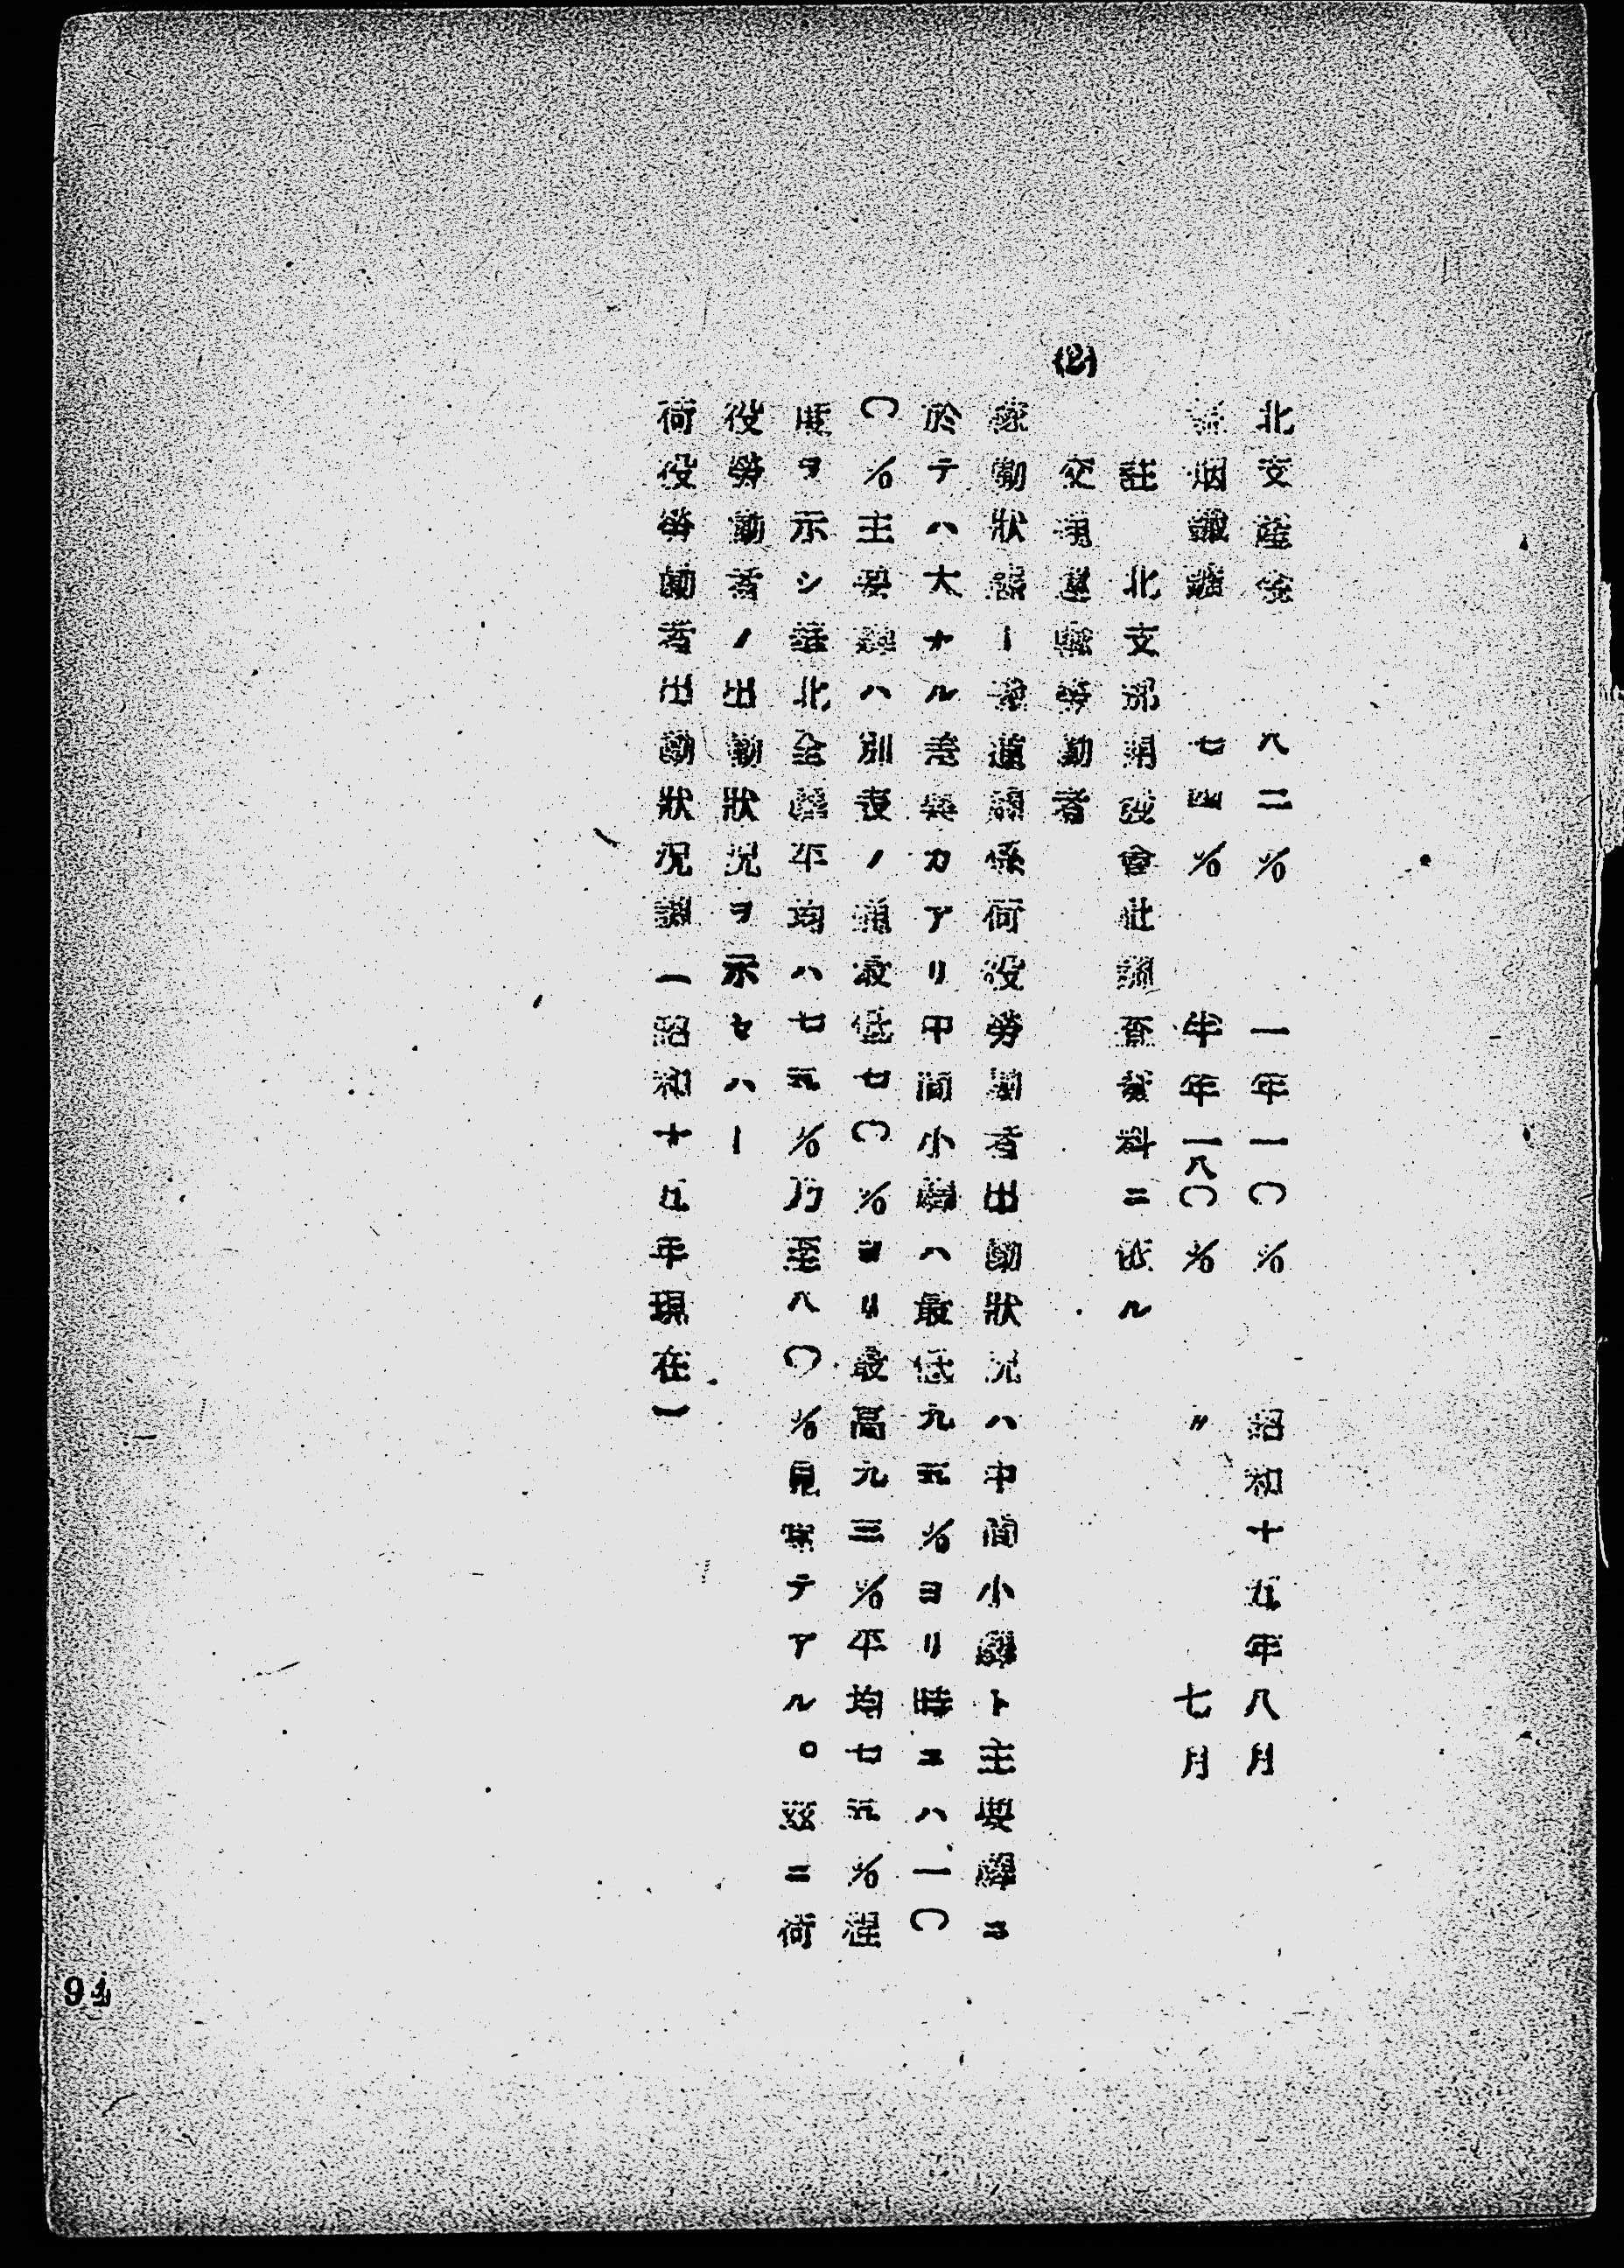 北支産金　八二%　一年一〇%　昭和十五年八月
烟鐵鑛　七四%　半年一八〇%　〃　七月
註　北支那開発會社調査資料ニ依ル
(2)　交通運輸勞働者
稼働狀況ー鐵道關係荷役勞働者出動狀況ハ中間小驛ト主要驛ニ
於テハ大ナル差異カアリ中間小驛ハ最低九五%ヨリ時ニハ一〇
〇%主要驛ハ別表ノ通最低七〇%ヨリ最高九三%平均七五%程
度ヲ示シ華北全驛平均ハ七五%乃至八〇%見當テアル。茲ニ荷
役勞働者ノ出勤狀況ヲ示セハー
荷役勞働者出勤狀況調（昭和十五年現在）